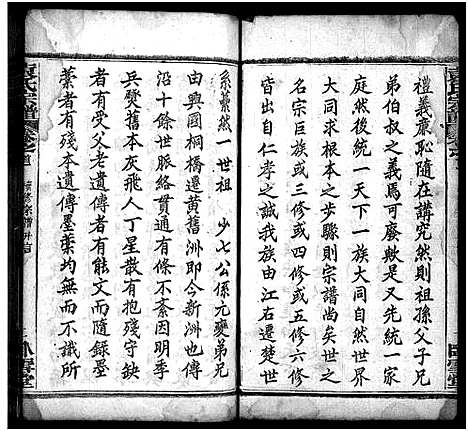 禮義廉恥隨在講究然則祖孫父子兄
弟伯叔之義焉可廢歟是又先統一家
庭然後統一天下一族大同自然世界
大同求根本之步驟則宗譜尚矣世之
名宗巨族或三修四修或五修六修
皆出自仁孝之誠也由江右遷楚世
系藁然一世祖 少七公係元夔弟兄
由興國桐橋遷黃舊洲即今新洲也傳
沿十餘世脈絡貫通有條不紊因明季
兵燹舊本灰飛人丁星散有抱殘守缺
者有受父老遺傳者有能文而隨錄臺
藁者有殘本遺傳墨藁均無而不識所
氏宗譜
卷之首
續修宗譜弁言
臥雪堂